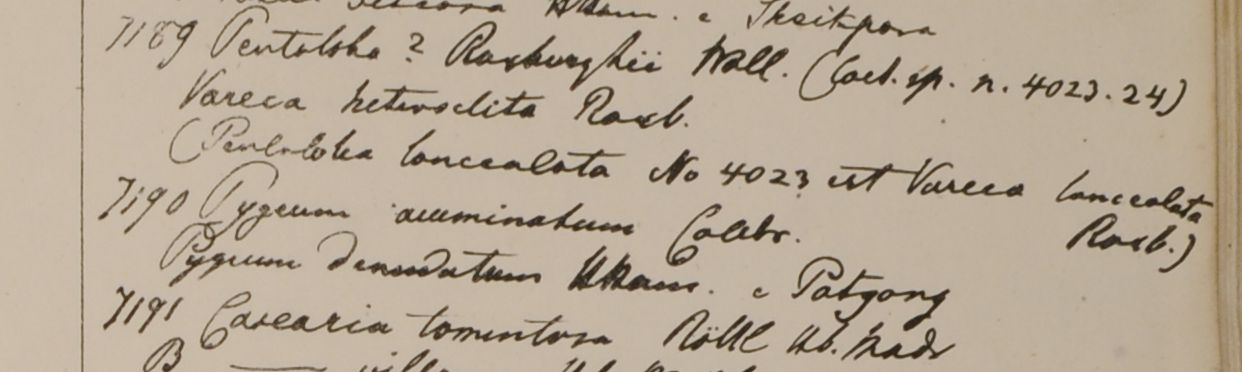 HHam. e Theikpora
7189 Pentaloba? Roxburghii Wall. (Coel. sp. n. 4023.24)
Vareca heteroclita Roxb.
(Pentaloba lanceolata No 4023 est Vareca lanceolata Roxb.)
7190 Pygeum acuminatum Colebr.
Pygeum denudatum HHam. e Patgong
7191 Casearia tomentosa Röttl Hb. Madr
B